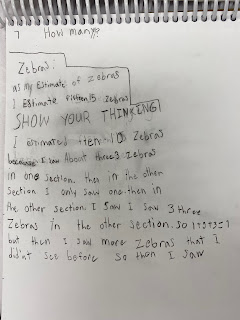 7 How many?
Zebras:
as my Estimate of zebras
I Estimate fifteen 15 zebras
SHOW YOUR THINKING
I estimated 10 Zebras
I saw About three 3 Zebras
in one section. then in the other
section I only saw one. then in
the other section. I saw I saw 3 three
Zebras in the other section. so
but then I saw more Zebras that I
didn't see before so then I saw